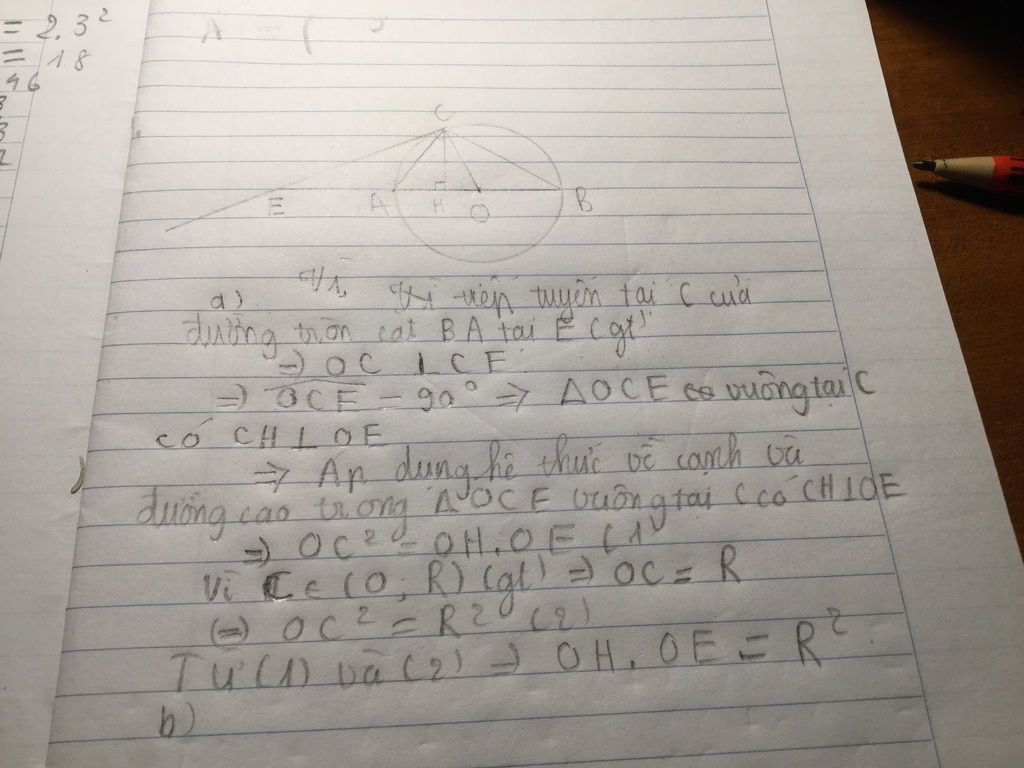 = 2.3²
= 18
46
A = (
C
E A H O B
a) Vì tiếp tuyến tại C của
đường tròn cắt BA tại E (gt)
=> OC ⊥ CE
=> OCE = 90° => ΔOCE vuông tại C
có CH ⊥ OE
=> Áp dụng hệ thức về cạnh và
đường cao trong ΔOCE vuông tại C có CH⊥OE
=> OC² = OH.OE (1)
Vì C ∈ (O; R) (gt) => OC = R
(=) OC² = R² (2)
Từ (1) và (2) => OH.OE = R².
b)